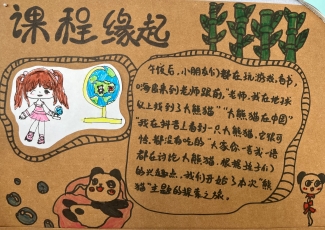 课程缘起
午饭后，小朋友们都在玩游戏，
跑来到老师跟前，“老师，我在地球
仪上找到了大熊猫”“大熊猫在中国”
“我在抖音上看到一只大熊猫，它很可
怜，都没有吃的”大家你一言我一语
都在讨论大熊猫，跟随孩子们
的兴趣点，我们开始了本次“熊
猫”主题的探索之旅。